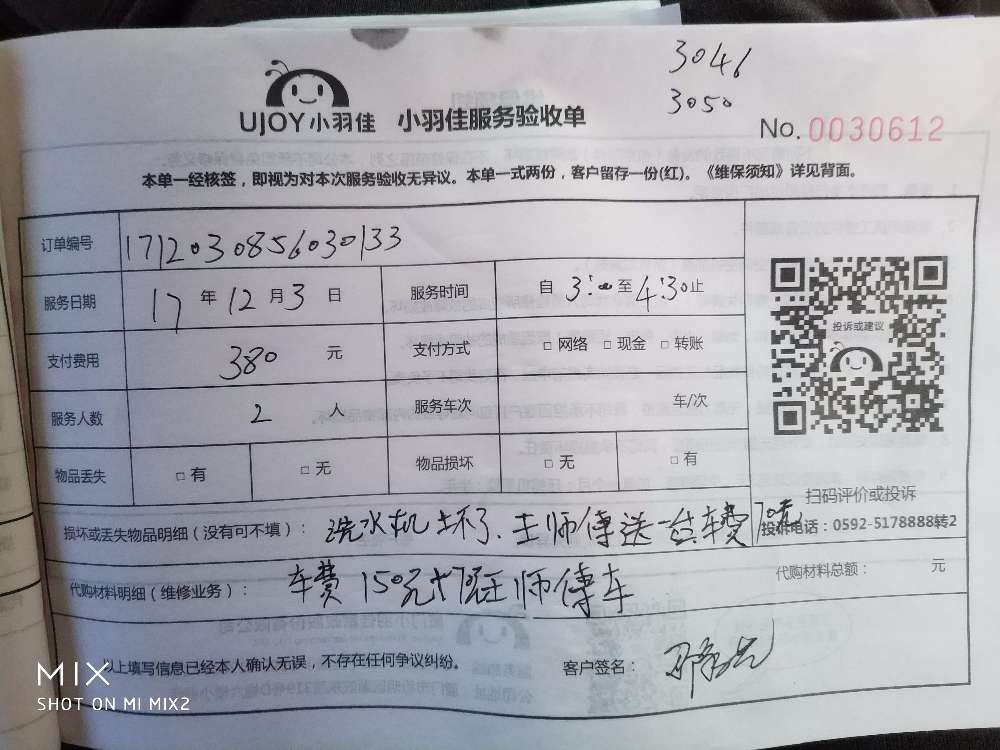 3046
3050
UJOY小羽佳 小羽佳服务验收单
No. 0030612
本单一经核签，即视为对本次服务验收无异议。本单一式两份，客户留存一份(红)。《维保须知》详见背面。
订单编号 1712030856030133
服务日期 17 年 12 月 3 日 服务时间 自 3:00 至 4:30 止
投诉或建议
支付费用 380 元 支付方式 □ 网络 □ 现金 □ 转账
服务人数 2 人 服务车次 车/次
物品丢失 □ 有 □ 无 物品损坏 □ 无 □ 有
扫码评价或投诉
投诉电话：0592-5178888转2
损坏或丢失物品明细（没有可不填）： 洗水机坏了、王师傅送一台车费70元
代购材料明细（维修业务）： 车费150元+70王师傅车
代购材料总额： 元
以上填写信息已经本人确认无误，不存在任何争议纠纷。 客户签名：
MIX
SHOT ON MI MIX2